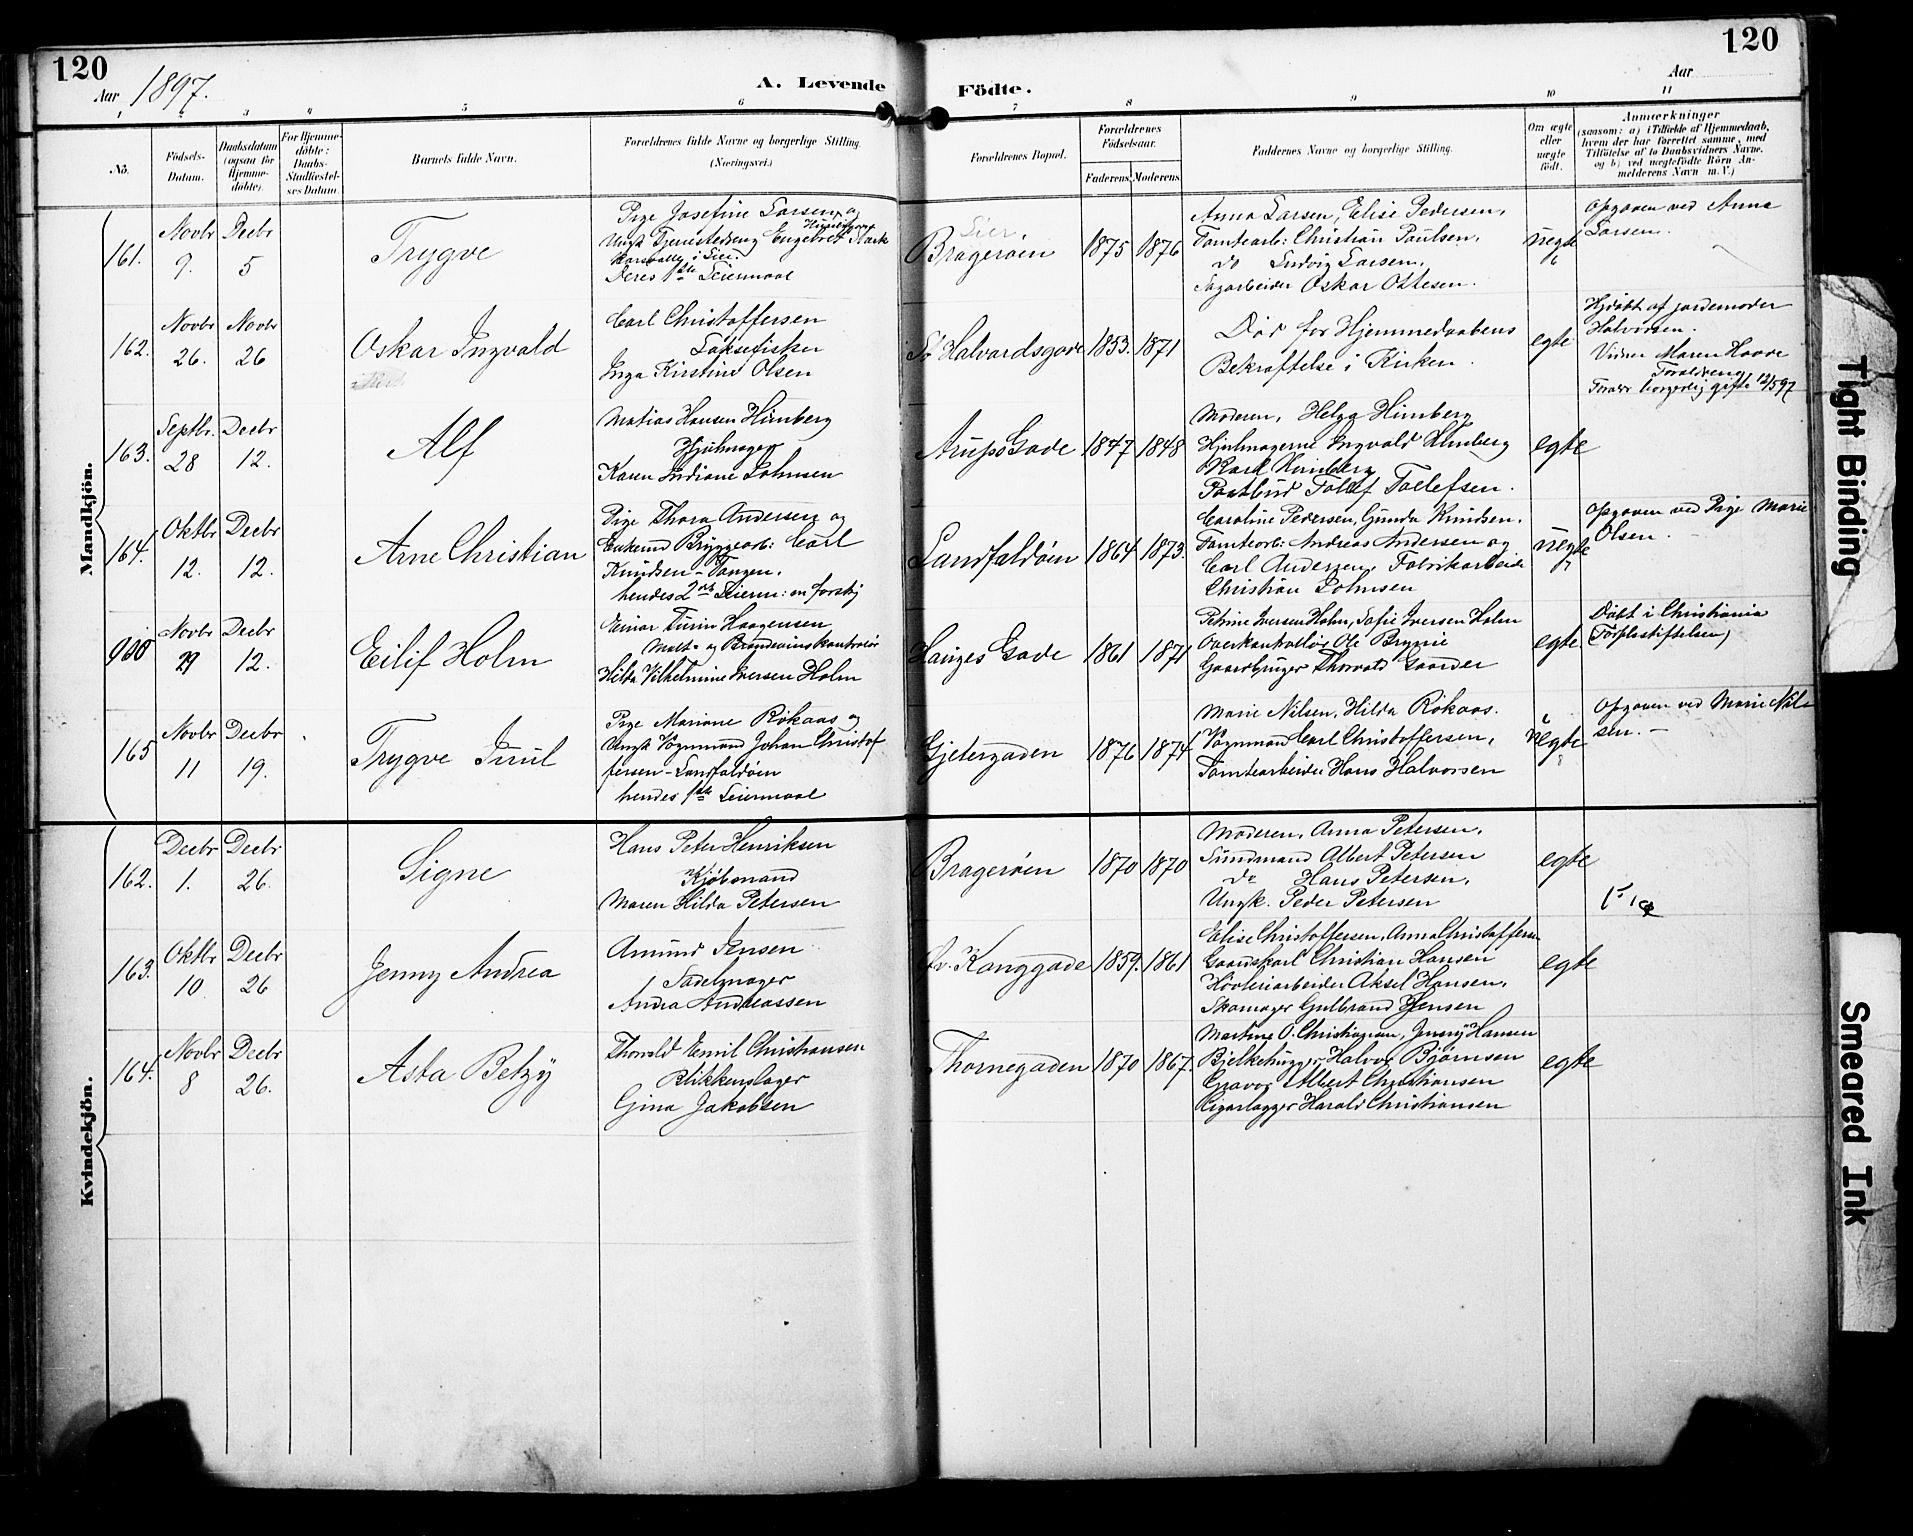 120
Aar 1897.
A. Levende
Födte.
120
Aar
1 2 3 4 5 6 7 8 9 10 11
No.
Födsels-
Datum.
Daabsdatum
(ogsaa for
Hjemme-
döbte).
For Hjemme-
döbte:
Daabs-
Stadfæstel-
ses Datum.
Barnets fulde Navn.
Forældrenes fulde Navne og borgerlige Stilling.
(Næringsvei.)
Forældrenes Bopæl.
Forældrenes
Födselsaar.
Faderens. Moderens.
Faddernes Navne og borgerlige Stilling.
Om ægte
eller
uægte
födt.
Anmærkninger
(saasom: a) i Tilfælde af Hjemmedaab,
hvem der har forrettet samme, med
Tilföielse af to Daabsvidners Navne,
og b) ved uægtefödte Börn An-
melderens Navn m. V.)
Mandkjön.
161.
Novbr
9.
Decbr
5
Trygve
Pige Josefine Larsen og
Ungk Tjenestedreng Engebret
i Lier.
Deres 1ste Leiermaal
Lier,
Bragerøen
1875
1876
Anna Larsen, Elise Pedersen,
Tomtearb: Christian Paulsen,
do Ludvig Larsen,
Sagarbeider Oskar Ottesen.
uegte
Opgaven ved Anna
Larsen.
162.
Novbr
26.
Novbr
26
Oskar Ingvald
Carl Christoffersen
Laksefisker
Inga Kirstine Olsen
St Halvardsgade
1853.
1871
Død før Hjemmedaabens
Bekræftelse i Kirken.
egte
Hjdøbt af jordemoder
Halvorsen.
Vidner Maren Haave
Forældrene
borgerlig gifte 12/5 97
163.
Septbr.
28
Decbr
12.
Alf
Matias Hansen Himberg
Hjulmager
Karen Indiane Johnsen
Arups Gade
1847
1848
Moderen, Helga Himberg
Hjulmagerne Ingvald Himberg
Karl Himberg
Postbud Tollef Tollefsen.
egte
164.
Oktbr
12.
Decbr
12.
Arne Christian
Pige Thora Andersen og
Enkemd Bryggearb: Carl
Knudsen - Tangen.
hendes 2det Leierm:
Landfaldøen
1864
1873.
Caroline Pedersen, Gunda Knudsen.
Tomtearb: Andreas Andersen og
Carl Andersen, Fabrikarbeid
Christian Johnsen
uegte
Opgaven ved Pige Marie
Olsen.
900
Novbr
29
Decbr
12.
Eilif Holm
Einar Haagensen
Malt- og Brændevinskontrolør
Hilda Vilhelmine Iversen Holm
Hauges Gade
1861
1871
Petrine Iversen Holm, Sofie Iversen Holm
Overkontrollør Ole Brynie
Gaardbruger Thorvald Gaarder
egte
Døbt i Christiania
(Fødselsstiftelsen)
165
Novbr
11
Decbr
19.
Trygve Juul
Pige Mariane Rökaas og
Ungk Vognmand Johan Christof
fersen - Landfaldøen
hendes 1ste Leiermaal
Gjetergaden
1876
1874
Marie Nilsen, Hilda Rökaas.
Vognmand Carl Christoffersen,
Tomtearbeider Hans Halvorsen
uegte
Opgaven ved Marie Nil-
sen.
Kvindekjön.
162.
Decbr
1.
Decbr
26.
Signe
Hans Peter Henriksen
Kjøbmand
Maren Hilda Petersen
Bragerøen
1870
1870
Moderen, Anna Petersen,
Sundmand Albert Petersen
do Hans Petersen,
Ungk. Peder Petersen
egte
163.
Oktbr
10
Decbr
26
Jenny Andrea
Amund Jensen
Sadelmager
Andrea Andreassen
Øv. Konggade
1859.
1861
Elise Christoffersen, Anna Christoffersen
Gaardskarl Christian Hansen
Høvleriarbeider Aksel Hansen,
Skomager Gulbrand Jensen
egte
164.
Novbr
8
Decbr
26.
Asta Betzy
Thorvald Emil Christiansen
Blikkenslager
Gina Jakobsen
Thornegaden
1870
1867.
Martine O. Christiansen, Jenny Hansen
Bjelkehugger Halvor Bjørnsen
Gravør Albert Christiansen
Sigarlagger Harald Christiansen
egte
Tight Binding
Smeared Ink